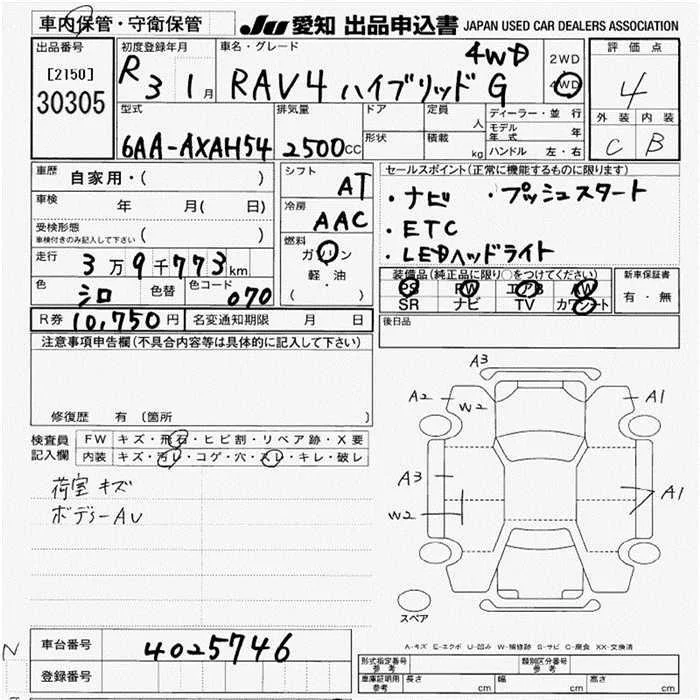 車内保管・守衛保管 JU 愛知 出品申込書 JAPAN USED CAR DEALERS ASSOCIATION
出品番号 初度登録年月 車名・グレード 評価点
[2150] R 3 1月 RAV4 ハイブリッド G 4WD 2WD 4WD 4
30305
型式 排気量 ドア 定員 人 ディーラー・並行 外装 内装
6AA-AXAH54 2500CC 形状 積載 kg モデル年式 年 C B
ハンドル 左・右
車歴 自家用・( ) シフト AT セールスポイント(正常に機能するものに限ります)
車検 年 月( 日) 冷房 AAC ・ナビ ・プッシュスタート
受検形態 ( ) 燃料 ・ETC
車検付きのみ記入して下さい ガソリン ・LEDヘッドライト
走行 3万9千773km 軽油 装備品(純正品に限り○をつけてください) 新車保証書
色 シロ 色替 色コード 070 ( ・ ) PS PW エアB AW 有・無
SR ナビ TV カワシート
R券 10,750円 名変通知期限 月 日 後日品
注意事項申告欄(不具合内容等は具体的に記入して下さい)
修復歴 有 〔箇所 〕
検査員 FW キズ・飛石・ヒビ割・リペア跡・X要
記入欄 内装 キズ・汚レ・コゲ・穴・スレ・キレ・破レ
荷室キズ
ボデーAU
A3
A2 W2 A1
A3
W2 A1
スペア
A-キズ E-エクボ U-凹み W-補修跡 S-サビ C-腐食 XX-交換済
車台番号 4025746
登録番号
型式指定番号 参考 類別区分番号 参考
車庫証明用 参考 長さ cm 幅 cm 高さ cm
N